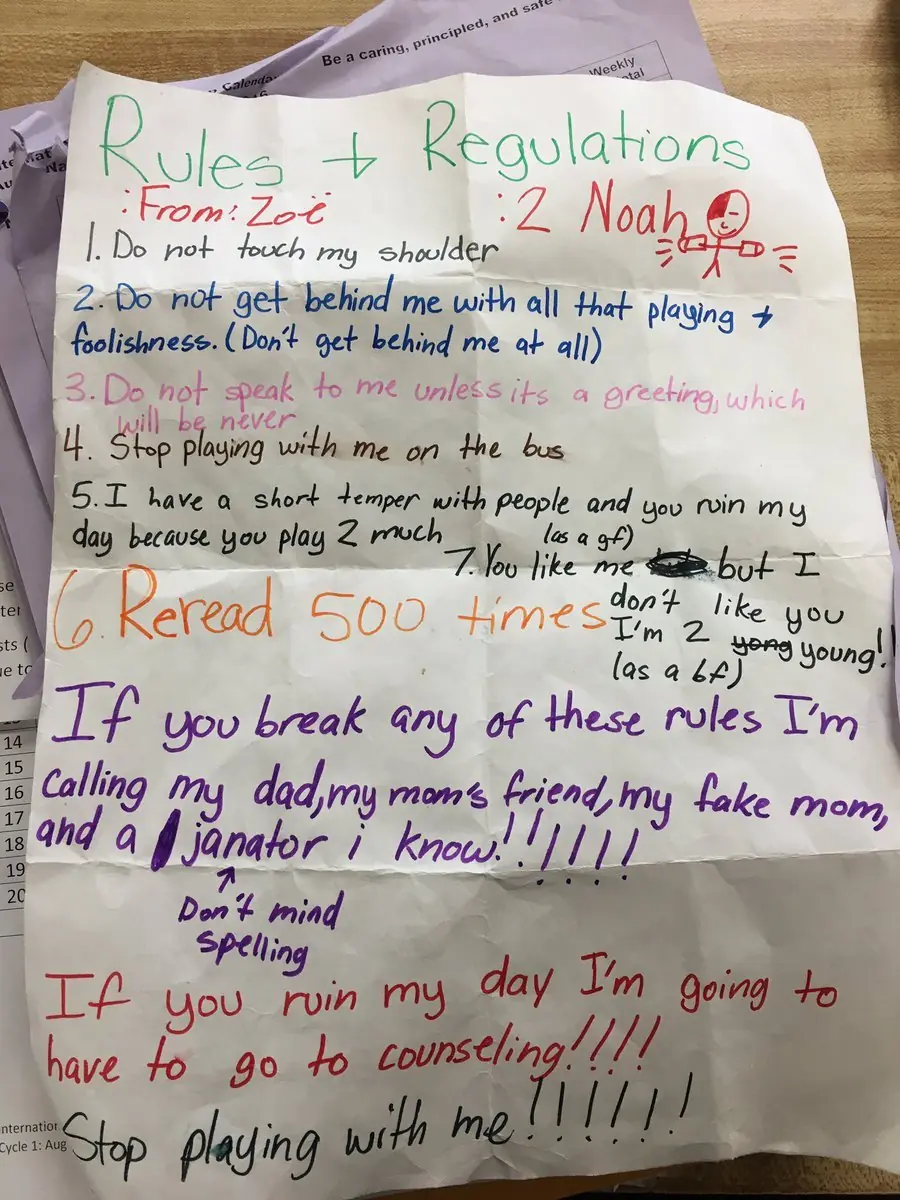 Be a caring, principled, and safe
Calenda
Weekly
Rules + Regulations
:From: Zoë
:2 Noah
1. Do not touch my shoulder
2. Do not get behind me with all that playing +
foolishness. (Don't get behind me at all)
3. Do not speak to me unless its a greeting, which
will be never
4. Stop playing with me on the bus
5. I have a short temper with people and you ruin my
day because you play 2 much
6. Reread 500 times
(as a gf)
7. You like me but I
don't like you
I'm 2 yong young!!
(as a bf)
If you break any of these rules I'm
calling my dad, my mom's friend, my fake mom,
and a janator i know!!!!!!!
Don't mind
spelling
If you ruin my day I'm going to
have to go to counseling!!!!
Stop playing with me!!!!!!!
14
15
16
17
18
19
20
Cycle 1: Aug